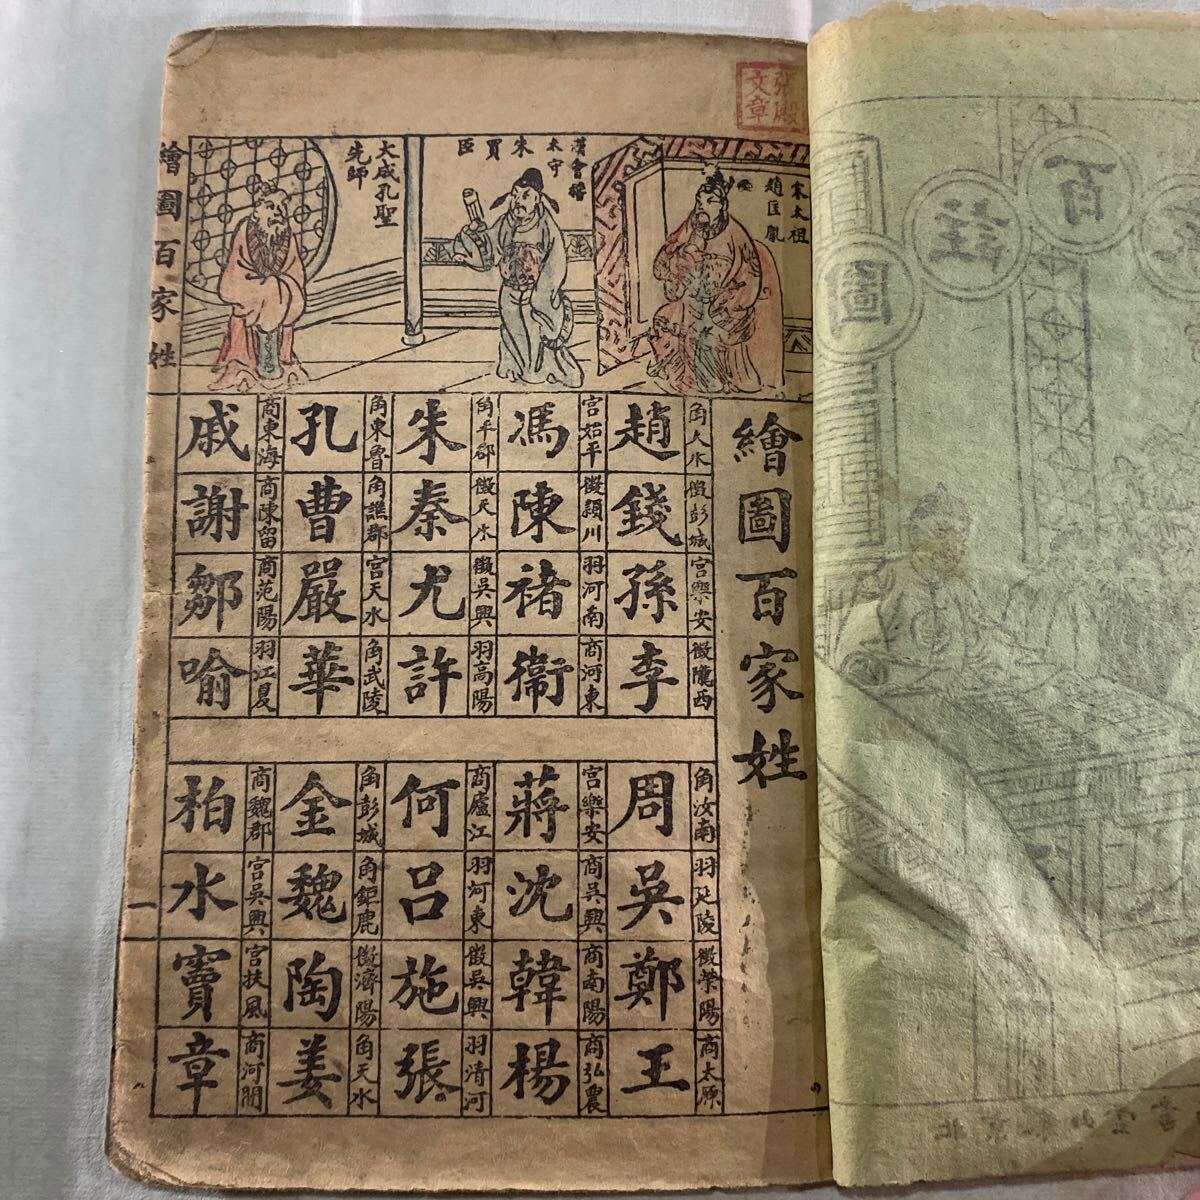 張殿
文章
宋太祖
趙匡胤
漢會稽
太守
朱買臣
大成孔聖
先師
繪圖百家姓
繪圖百家姓
趙錢孫李
角天水 徵彭城 宮樂安 徵隴西
馮陳褚衞
宮始平 徵潁川 羽河南 商河東
朱秦尤許
角平郡 徵天水 徵吳興 羽高陽
孔曹嚴華
角東魯 角譙郡 宮天水 角武陵
戚謝鄒喻
商東海 商陳留 商范陽 羽江夏
周吳鄭王
角汝南 羽延陵 徵滎陽 商太原
蔣沈韓楊
宮樂安 商吳興 商南陽 商弘農
何呂施張
商廬江 羽河東 徵吳興 羽清河
金魏陶姜
角彭城 角鉅鹿 徵濟陽 角天水
柏水竇章
商魏郡 宮吳興 宮扶風 商河間
一
百
註
圖